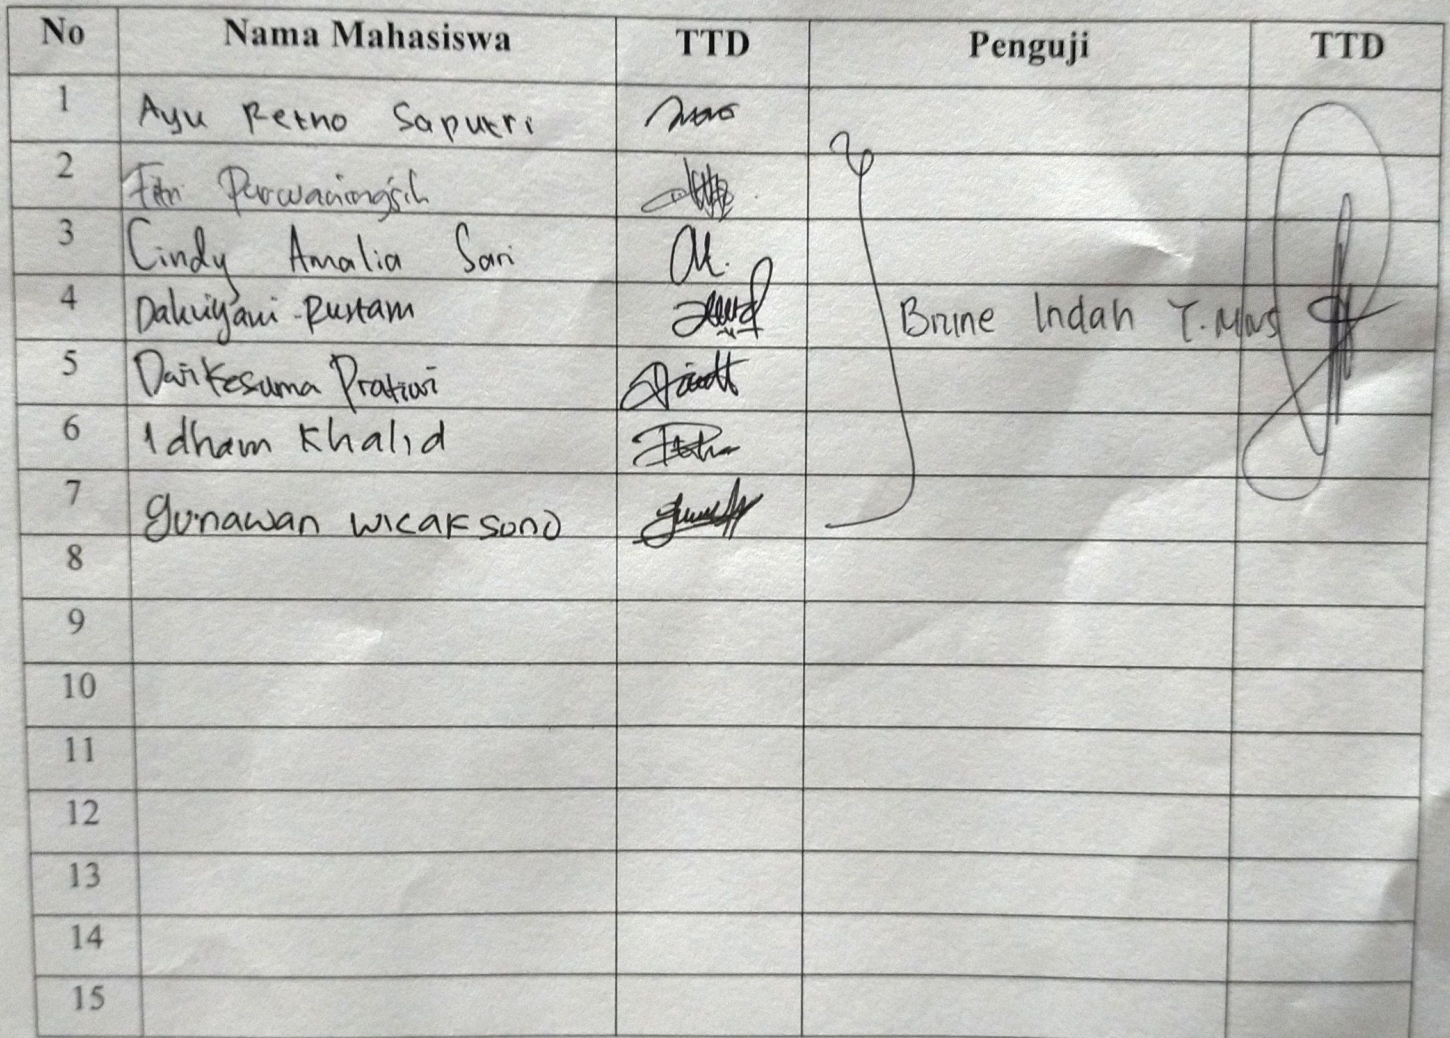 No Nama Mahasiswa TTD Penguji TTD
1 Ayu Retno Saputri
2 Fitri Purwaningsih
3 Cindy Amalia Sari
4 Rustam Brine Indah
5 Pratiwi
6 Idham Khalid
7 gunawan wicaksono
8
9
10
11
12
13
14
15